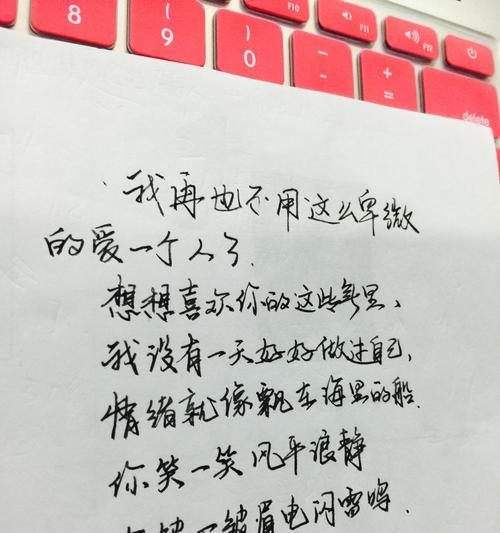 8
( 9
) 0
— -
+ =
F10
F11
F12
delete
我再也不用这么卑微
的爱一个人了.
想想喜欢你的这些年里、
我没有一天好好做过自己,
情绪就像飘在海里的船.
你笑一笑风平浪静
皱眉电闪雷鸣.